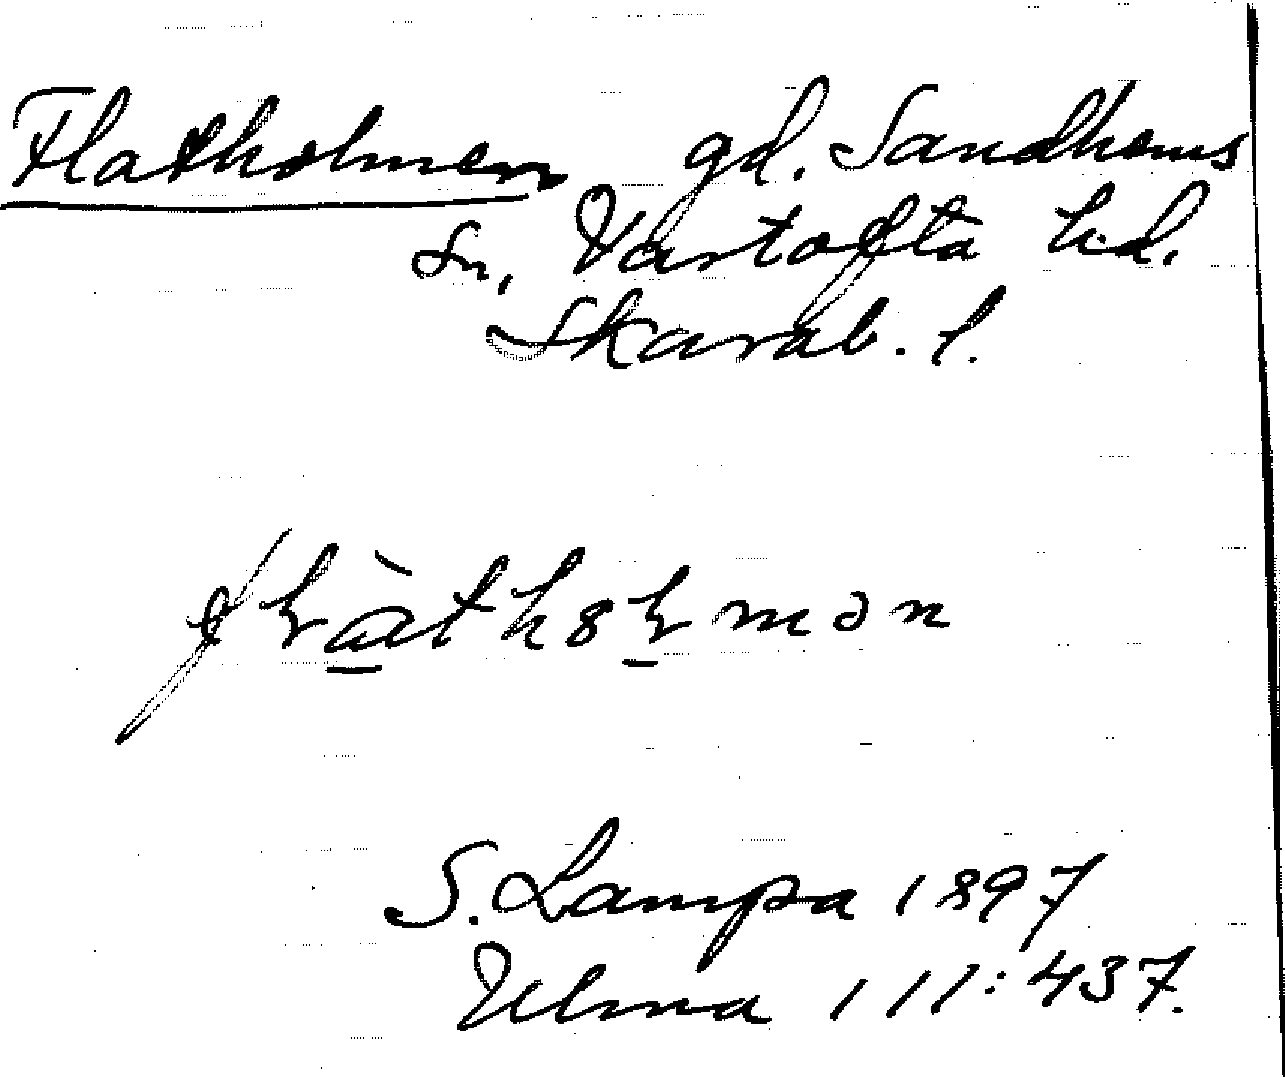 Flatholmen gd. Sandhems
sn, Vartofta hd.
Skarab. l.
S. Lampa 1897
Ulma 111:437.